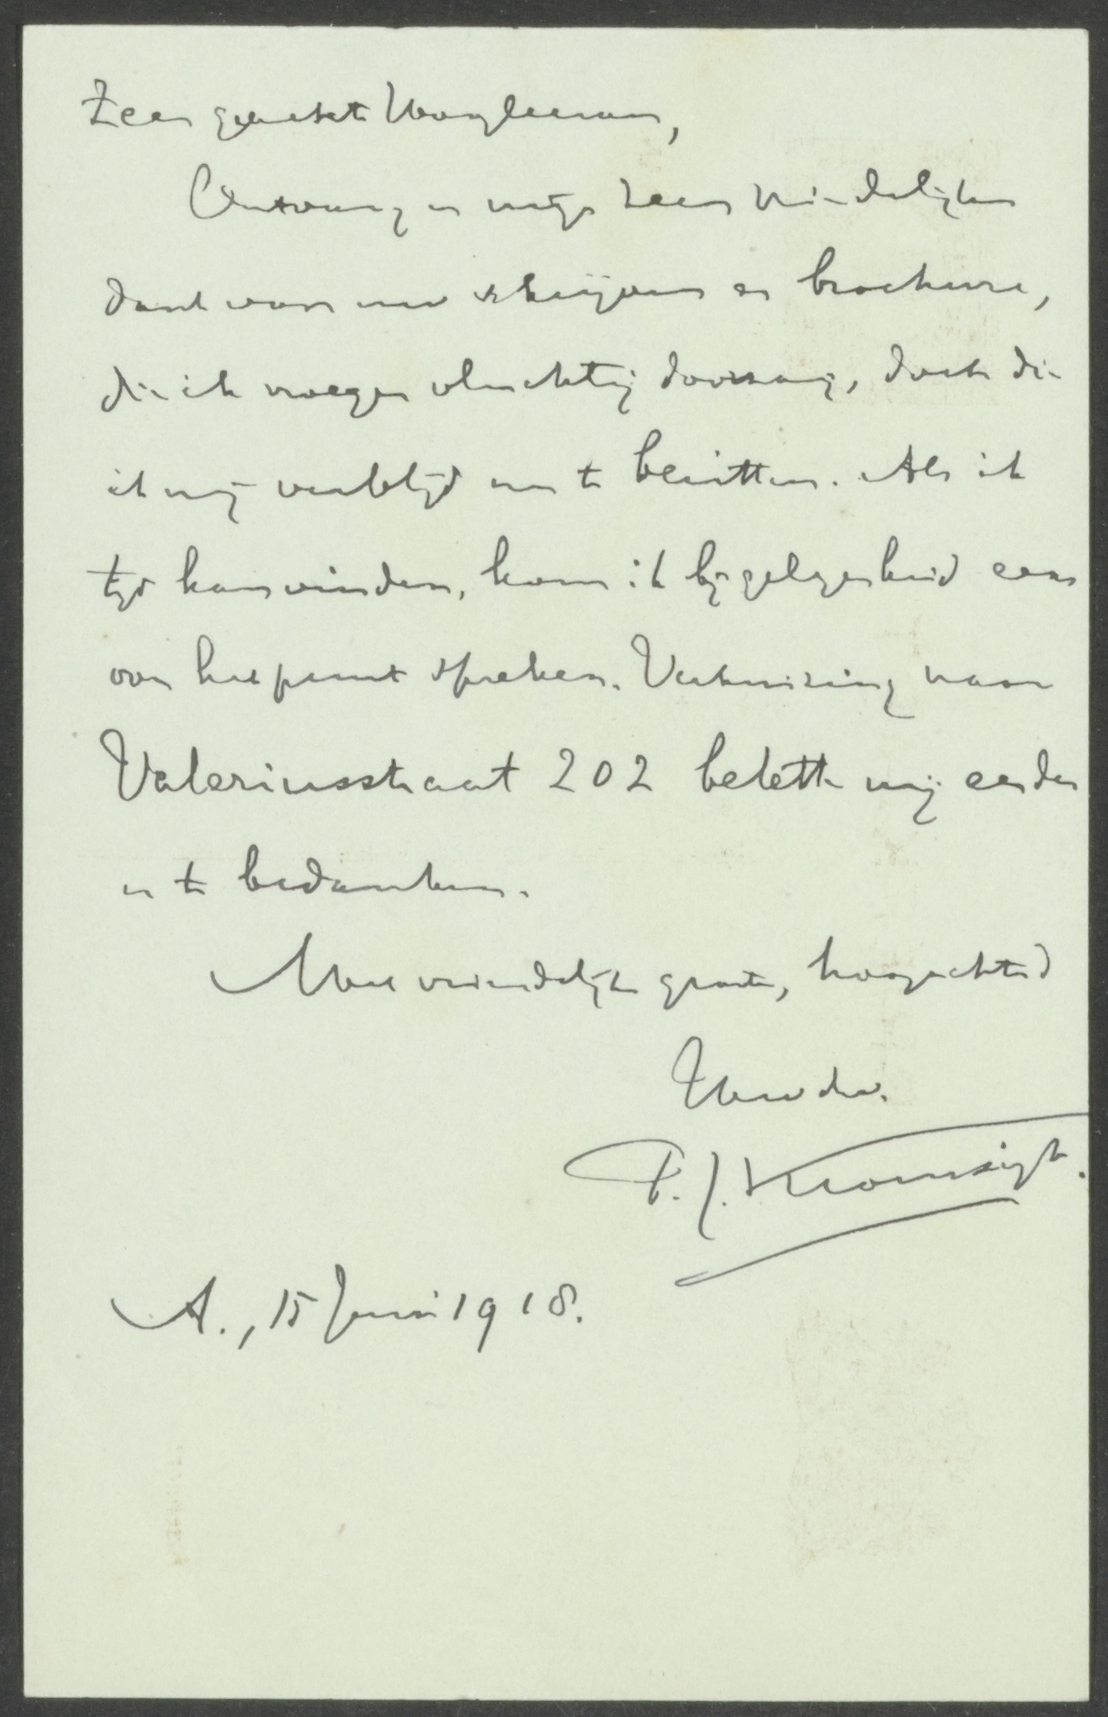 Zeer geachte Hoogleeraar,
Ontvang u mijn zeer vriendelijken
dank voor uw schrijven en brochure,
die ik vroeger vluchtig doorzag, doch die
ik mij verblijd nu te bezitten. Als ik
tijd kan vinden, kom ik bij gelegenheid eens
over het punt spreken. Verhuizing naar
Valeriusstraat 202 belette mij eerder
u te bedanken.
Met vriendelijke groete, hoogachtend
Uw dw.
P. J. Kromsigt.
A., 15 Juni 1918.